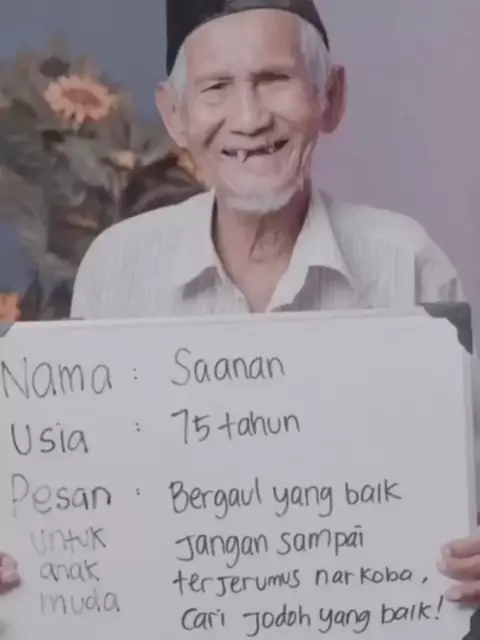 Nama : Saanan
Usia : 75 tahun
Pesan : Bergaul yang baik
untuk jangan sampai
anak terjerumus narkoba,
muda Cari jodoh yang baik!